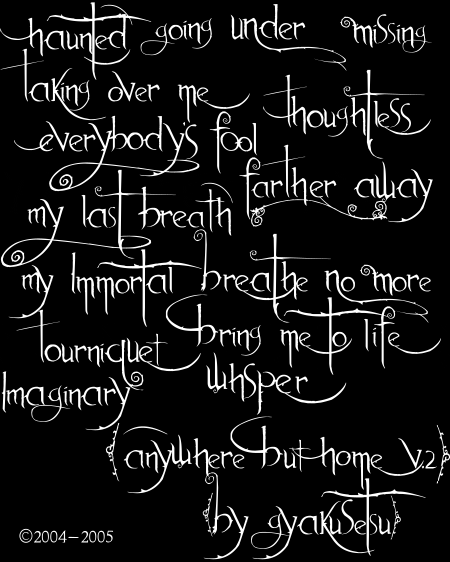 haunted going under missing
taking over me thoughtless
everybody's fool
farther away
my last breath
my Immortal breathe no more
tourniquet bring me to life
Imaginary whsper
(anywhere but home v.2)
(by gyakuSetsu)
©2004-2005